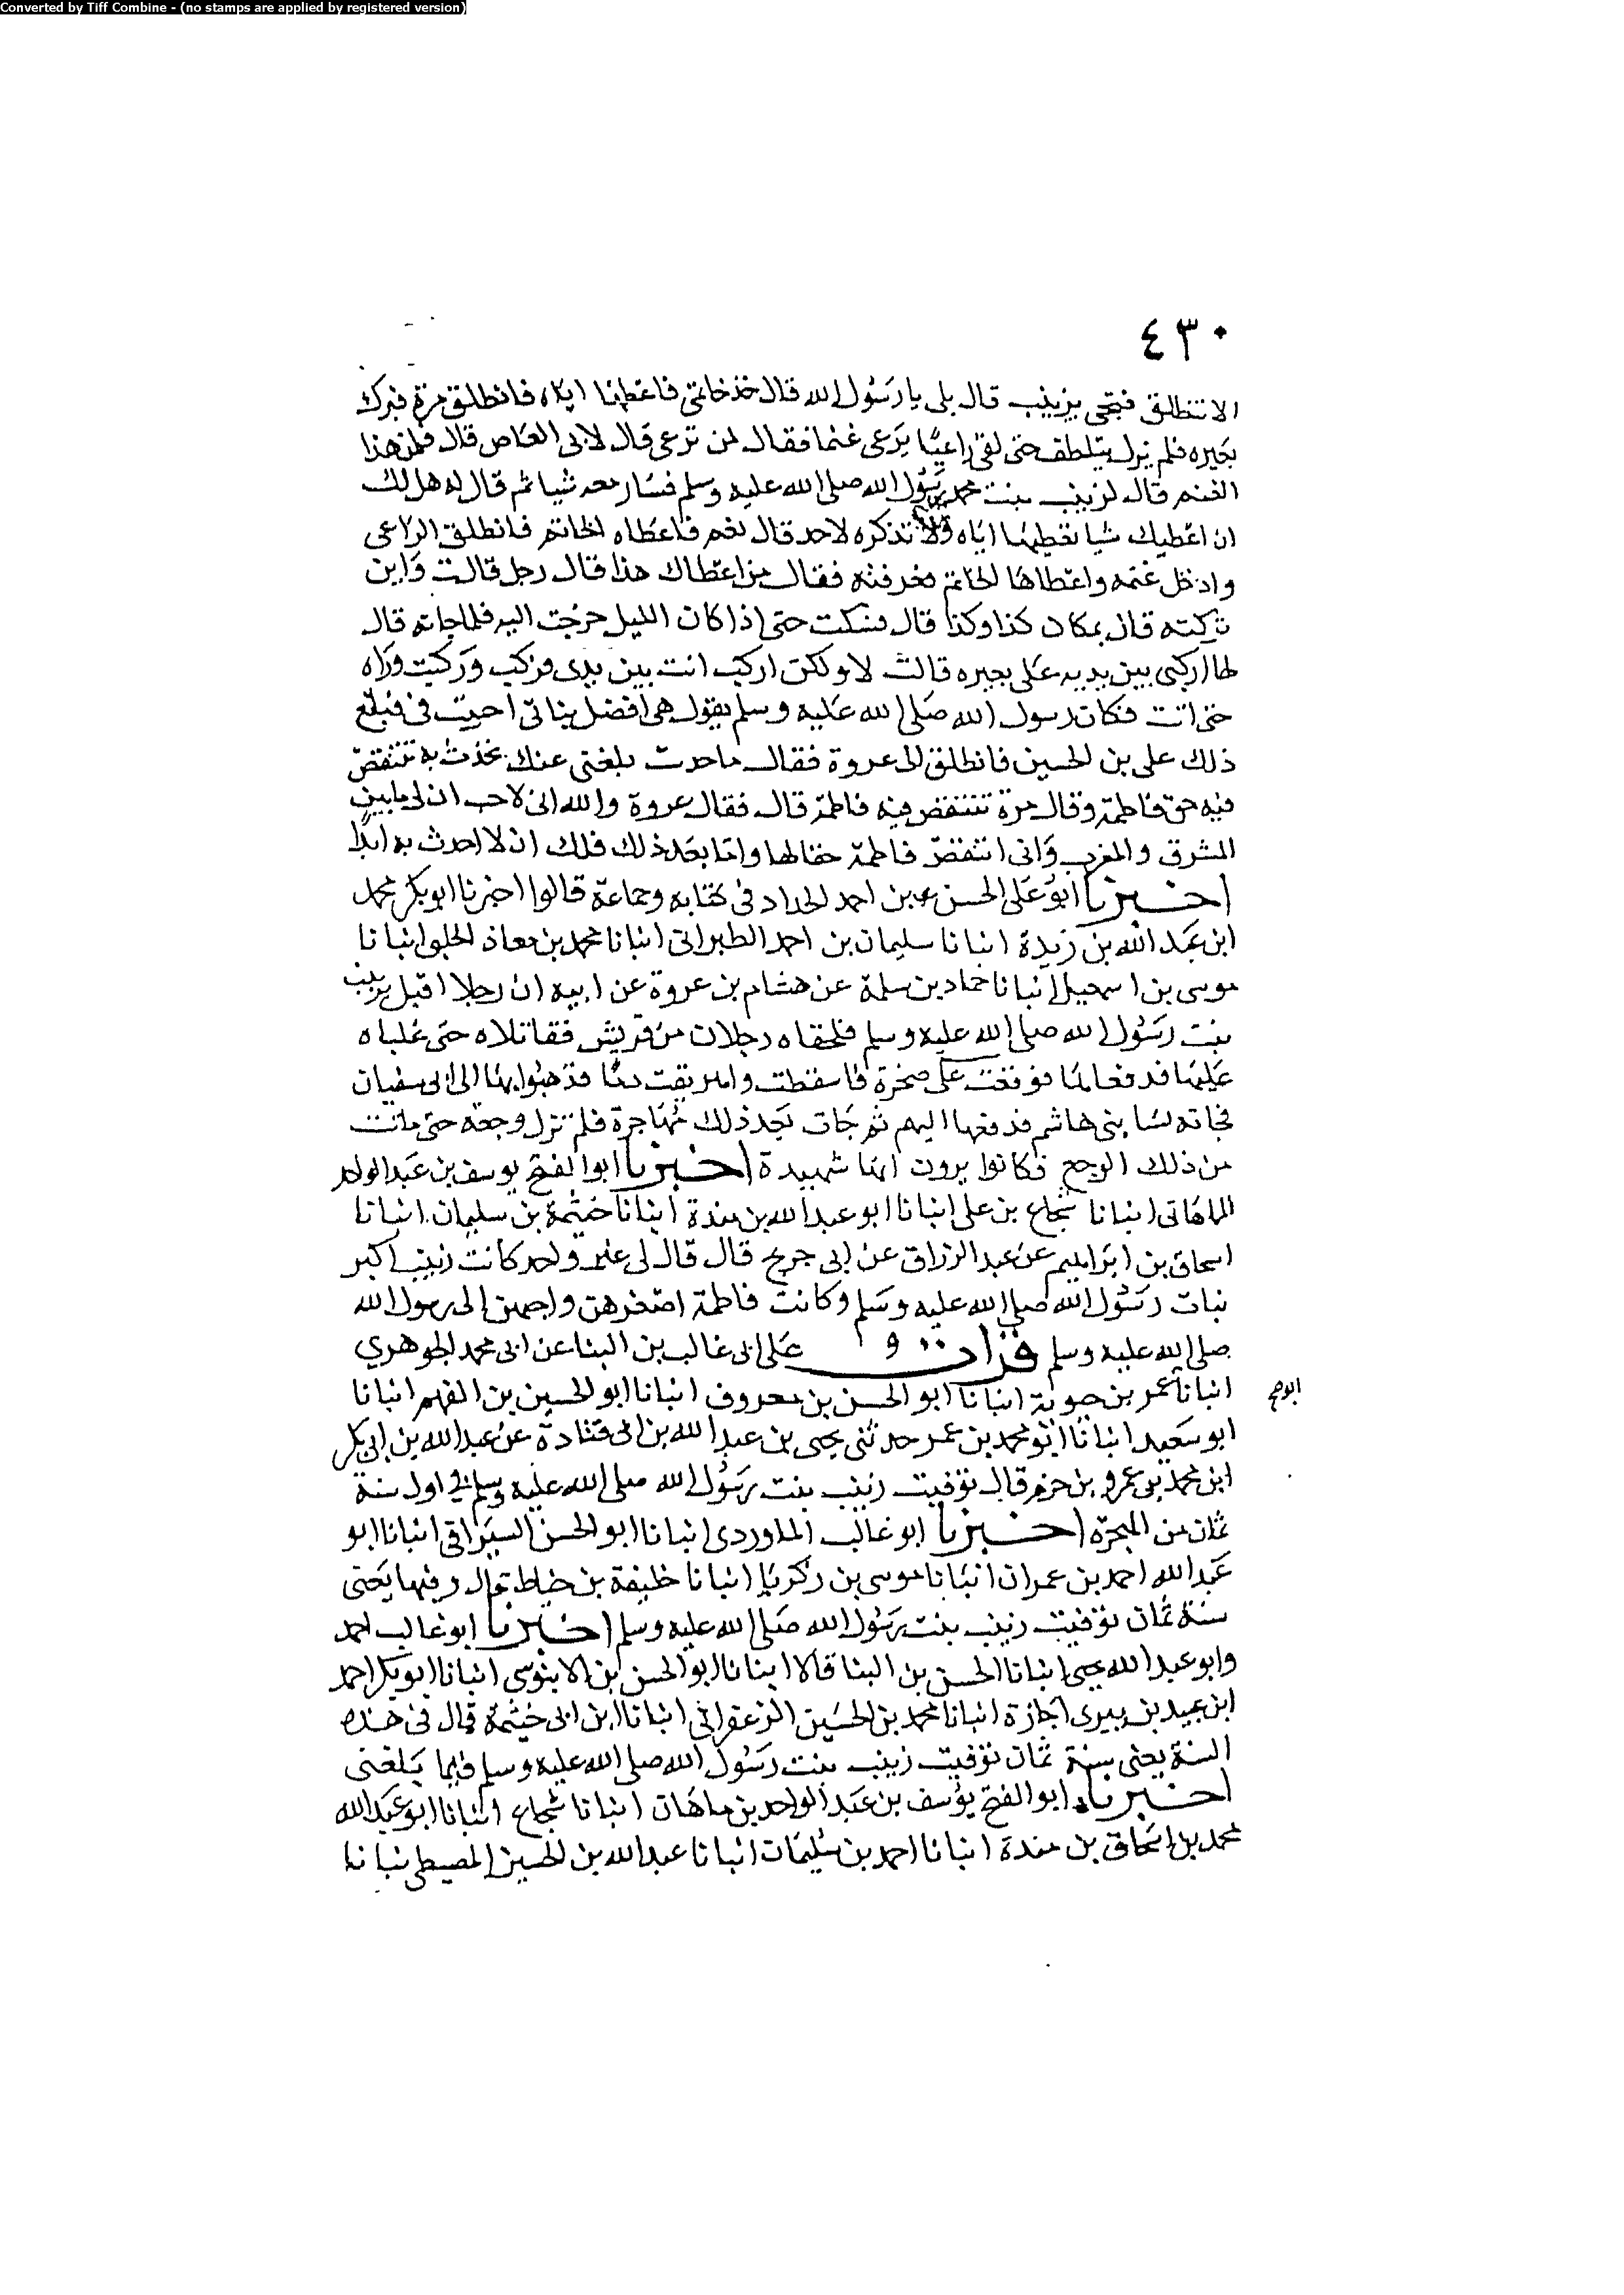 Converted by Tiff Combine - (no stamps are applied by registered version)
٤٣٠
الا تنطلق فتجى بزينب قال بلى يا رسول الله قال خذ خاتمى فاعطها اياه فانطلق مرة فبرك
بعيره فلم يزل يتلطف حتى لقى راعيا يرعى غنما فقال لمن ترعى قال لابى العاص قال فلمن هذا
الغنم قال لزينب بنت محمد رسول الله صلى الله عليه وسلم فسار معه شيا ثم قال له هل لك
ان اعطيك شيا تعطيها اياه ولا تذكره لاحد قال نعم فاعطاه الخاتم فانطلق الراعى
وادخل غنمه واعطاها الخاتم فعرفته فقالت من اعطاك هذا قال رجل قالت واين
تركته قال بمكان كذا وكذا قال فسكت حتى اذا كان الليل خرجت اليه فلما جاته قال
لها اركبى بين يديه على بعيره قالت لا ولكن اركب انت بين يدى فركب وركبت وراه
حتى اتت فكان رسول الله صلى الله عليه وسلم يقول هى افضل بناتى اصيبت فى فبلغ
ذلك على بن الحسين فانطلق الى عروة فقال ما حديث بلغنى عنك تحدث به تنتقص
فيه حق فاطمة وقال مرة تنتقص فيه فاطمة قال فقال عروة والله انى لا احب ان لى ما بين
المشرق والمغرب وانى انتقص فاطمة حقا لها واما بعد ذلك فلك ان لا احدث به ابدا
اخبرنا ابو على الحسن بن احمد الحداد فى كتابه وجماعة قالوا اخبرنا ابو بكر محمد
ابن عبد الله بن زيدة انبانا سليمان بن احمد الطبرانى انبانا محمد بن معاذ الحلبى انبانا
موسى بن اسمعيل انبانا حماد بن سلمة عن هشام بن عروة عن ابيه ان رجلا اقبل بزينب
بنت رسول الله صلى الله عليه وسلم فلحقاه رجلان من قريش فقاتلاه حتى غلباه
عليها فدفعاها فوقعت على صخرة فاسقطت واهريقت دما فذهبوا بها الى ابى سفيان
فجاته نسا بنى هاشم فدفعها اليهم ثم جات بعد ذلك مهاجرة فلم تزل وجعة حتى ماتت
من ذلك الوجع فكانوا يرون انها شهيدة اخبرنا ابو الفتح يوسف بن عبد الواحد
الماهانى انبانا شجاع بن على انبانا ابو عبد الله بن مندة انبانا خيثمة بن سليمان انبانا
اسحاق بن ابراهيم عن عبد الرزاق عن ابى جريج قال قال لى غير واحد كانت زينب اكبر
بنات رسول الله صلى الله عليه وسلم وكانت فاطمة اصغرهن واحبهن الى رسول الله
صلى الله عليه وسلم قرات على ابى غالب بن البنا عن ابى محمد الجوهرى
انبانا عمر بن حيوية انبانا ابو الحسن بن معروف انبانا ابو الحسين بن الفهم انبانا
ابو سعيد انبانا ابو محمد بن عمر حدثنى يحيى بن عبد الله بن ابى قتادة عن عبد الله بن ابى بكر
ابن محمد بن عمرو بن حزم قال توفيت زينب بنت رسول الله صلى الله عليه وسلم فى اول سنة
ثمان من الهجرة اخبرنا ابو غالب الماوردى انبانا ابو الحسن السيرافى انبانا ابو
عبد الله احمد بن عمران انبانا موسى بن زكريا انبانا خليفة بن خياط قال وفيها يعنى
سنة ثمان توفيت زينب بنت رسول الله صلى الله عليه وسلم اخبرنا ابو غالب احمد
وابو عبد الله يحيى انبانا الحسن بن البنا قالا انبانا ابو الحسن بن الابنوسى انبانا ابو بكر احمد
ابن عبيد بن بيرى اجازة انبانا محمد بن الحسين الزعفرانى انبانا ابن ابى خيثمة قال فى هذه
السنة يعنى سنة ثمان توفيت زينب بنت رسول الله صلى الله عليه وسلم فيما بلغنى
اخبرنا ابو الفتح يوسف بن عبد الواحد بن ماهان انبانا شجاع انبانا ابو عبد الله
محمد بن اسحاق بن مندة انبانا احمد بن سليمان انبانا عبد الله بن الحسين المصيصى انبانا